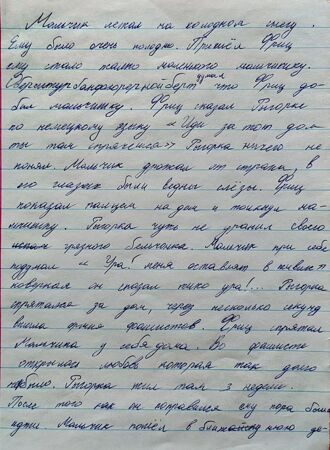 Мальчик лежал на холодном снегу.
Ему было очень холодно. Пришёл Фриц
ему стало жалко маленького мальчишку.
думал что Фриц до-
бил мальчишку. Фриц сказал Рыгорке
по немецкому языку «Иди за тот дом
ты там спрячешся» Рыгорка ничего не
понял. Мальчик дрожал от страха, в
его глазках были видны слёзы. Фриц
показал пальцем на дом и толкнул маль-
чишку. Рыгорка чуть не уранил своего
грязного бельчонка. Мальчик при себе
подумал « Ура! меня оставят в живых»
наверная он сказал тихо ура!... Рыгорка
спрятался за дом, через несколько секунд
фашистов. Фриц спрятал
Мальчика у себя дома. Во фашисте
любовь которая так долго
Рыгорка жил там 3 недели.
После того как он поправился ему пора было
идти. Мальчик пошёл в